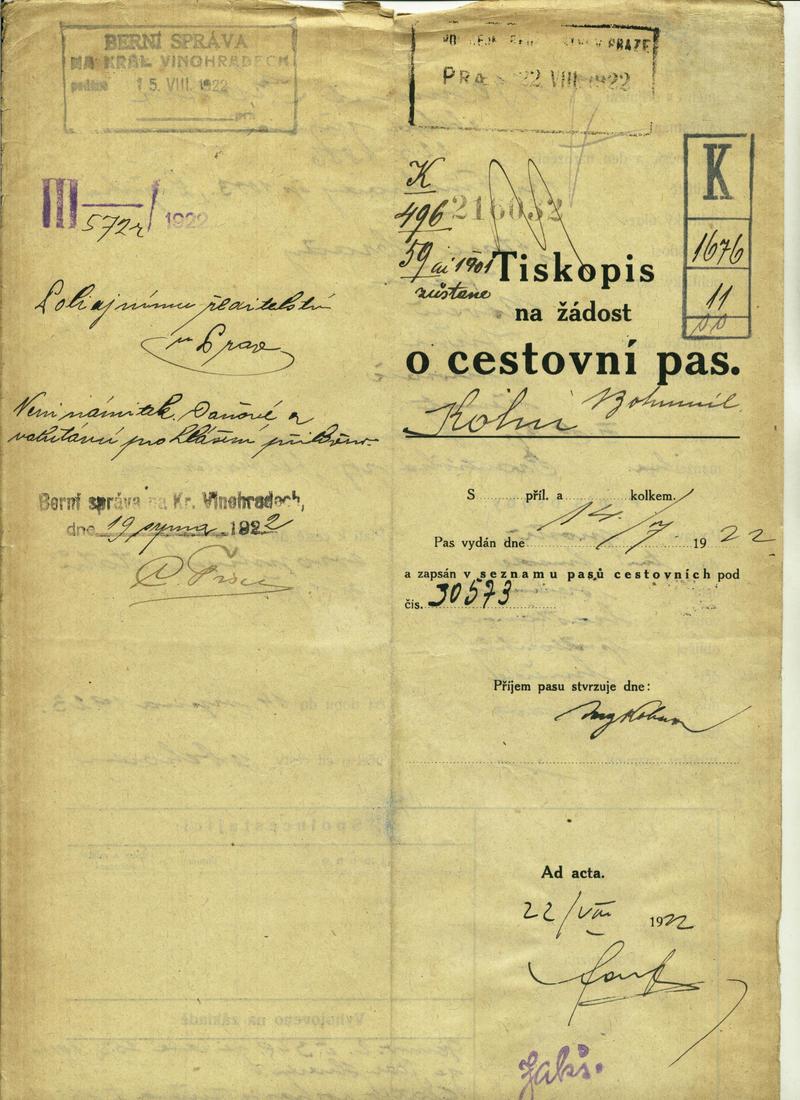 BERNÍ SPRÁVA
NA KRÁL. VINOHRADECH
podáno 15. VIII. 1922
III 572 / 1922
Policejnímu ředitelství
v Praze
Není námitek. Daňové a
prohlášení
Berní správa na Kr. Vinohradech,
dne 19 srpna 1922
V PRAZE
PRA 22 VIII 1922
K
496
59 ai 1901
zůstane
216032
K
1676
11
Tiskopis
na žádost
o cestovní pas.
Kohn Bohumil
S příl. a kolkem.
Pas vydán dne 14./7. 19 22
a zapsán v seznamu pasů cestovních pod
čís. 30573
Příjem pasu stvrzuje dne:
Ad acta.
22/VIII 1922